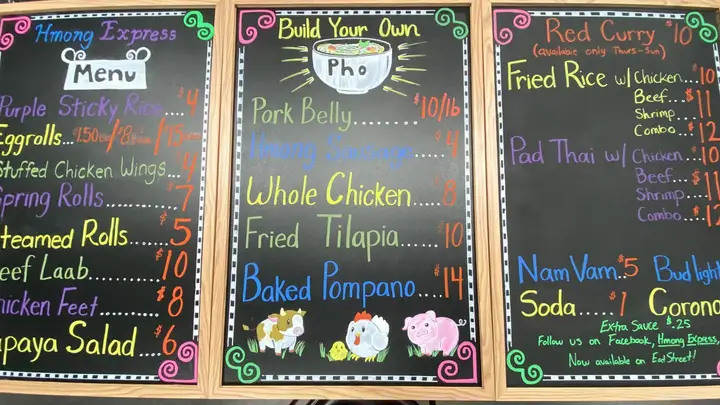 Hmong Express
Menu
Purple Sticky Rice $4
Eggrolls...
Stuffed Chicken Wings...$4
Spring Rolls $7
Steamed Rolls.......$5
Beef Laab.......$10
Chicken Feet.......$8
Papaya Salad....$6
Build Your Own
Pho
Pork Belly.......$10/lb
Hmong Sausage...$4
Whole Chicken....$8
Fried Tilapia......$10
Baked Pompano....$14
Red Curry $10
(available only Thurs-Sun)
Fried Rice w/ Chicken..$10
Beef...$11
Shrimp..
Combo..$12
Pad Thai w/ Chicken..$10
Beef...$11
Shrimp..
Combo..
Nam Vam.$5 Bud light
Soda....$1 Corona
Extra Sauce $.25
Follow us on Facebook, Hmong Express,
Now available on East Street!